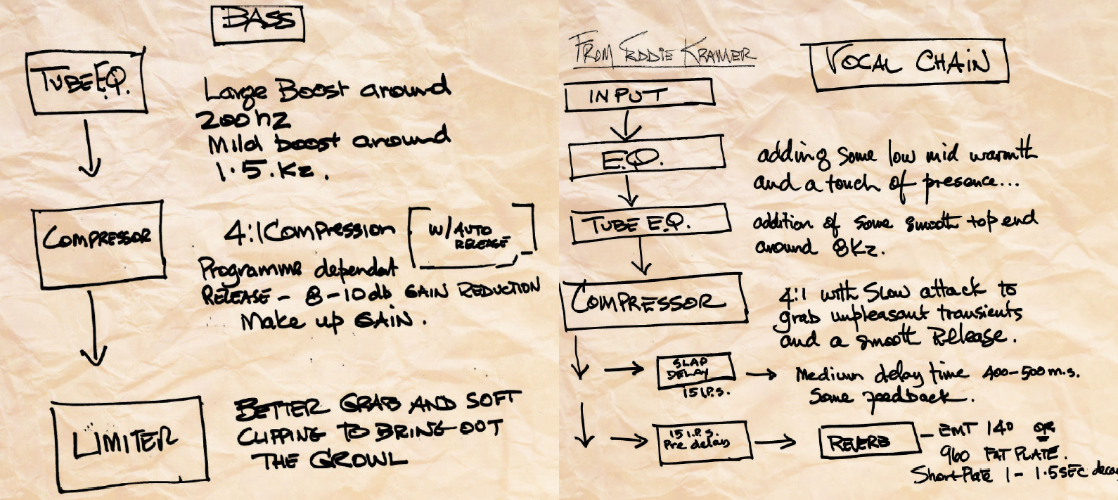 BASS
TUBE E.Q.
Large Boost around
200hz
Mild boost around
1.5.Kz.
COMPRESSOR
4:1 Compression
W/AUTO
RELEASE
Programme dependat
RELEASE - 8-10db GAIN REDUCTION
Make up GAIN.
LIMITER
BETTER GRAB AND SOFT
CLIPPING TO BRING OUT
THE GROWL
FROM EDDIE KRAMER
VOCAL CHAIN
INPUT
E.Q.
adding some low mid warmth
and a touch of presence...
TUBE E.Q.
addition of some smooth top end
around 8Kz.
COMPRESSOR
4:1 with Slow attack to
grab unpleasant transients
and a smooth Release.
SLAP
DELAY
15 I.P.S.
Medium delay time 400-500 m.s.
Some feedback.
15 I.P.S.
Pre delay
REVERB
- EMT 140 OR
960 FAT PLATE.
Short Plate 1 - 1.5 SEC decay